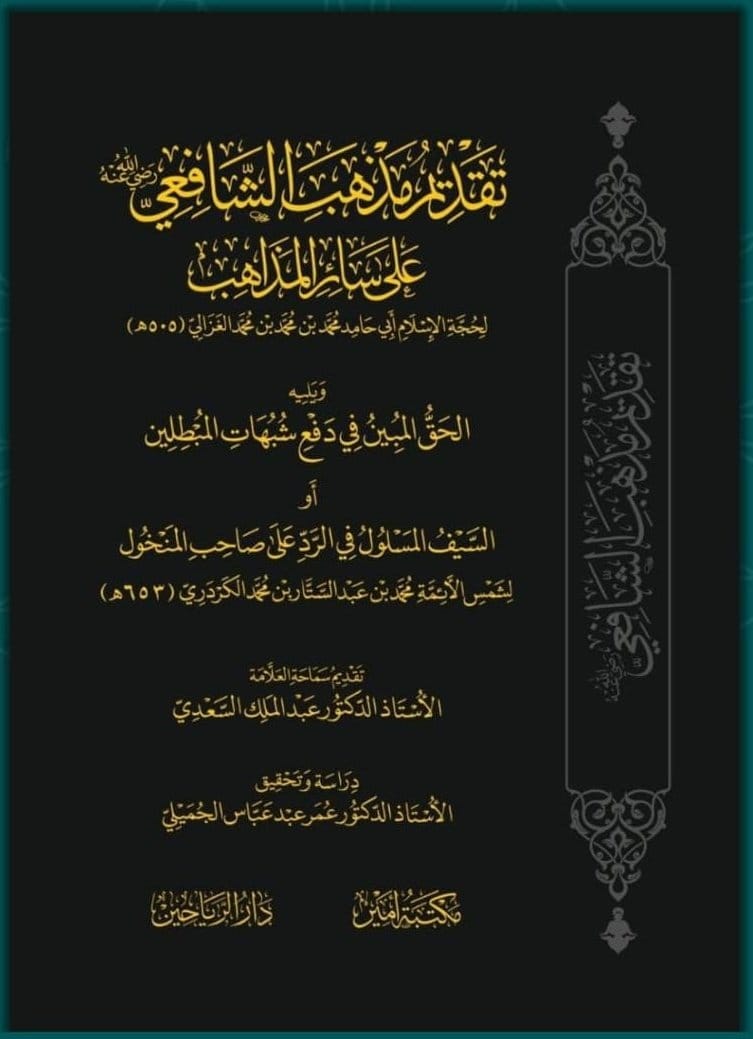 تَقْدِيمُ مَذْهَبِ الشَّافِعِيِّ رَضِيَ اللهُ عَنْهُ
عَلَى سَائِرِ المَذَاهِبِ
لِحُجَّةِ الإِسْلَامِ أَبِي حَامِد مُحَمَّد بْن مُحَمَّد بْن مُحَمَّد الغَزَالِيّ (٥٠٥هـ)
وَيَلِيه
الحَقُّ المُبِينُ فِي دَفْعِ شُبُهَاتِ المُبْطِلِين
أَو
السَّيْفُ المَسْلُولُ فِي الرَّدِّ عَلَى صَاحِبِ المَنْخُول
لِشَمْسِ الأَئِمَّةِ مُحَمَّد بْن عَبْد السَّتَّار بْن مُحَمَّد الكَرْدَرِيّ (٦٥٣هـ)
تَقْدِيمُ سَمَاحَةِ العَلَّامَة
الأُسْتَاذ الدّكتُور عَبْد المَلِك السَّعْدِيّ
دِرَاسَة وَتَحْقِيق
الأُسْتَاذ الدّكتُور عُمَر عبْد عَبَّاس الجُمَيْلِيّ
مَكتَبَةُ أَمِير
دَارُ الرَّيَاحِين
تَقْدِيمُ مَذْهَبِ الشَّافِعِيِّ رَضِيَ اللهُ عَنْهُ